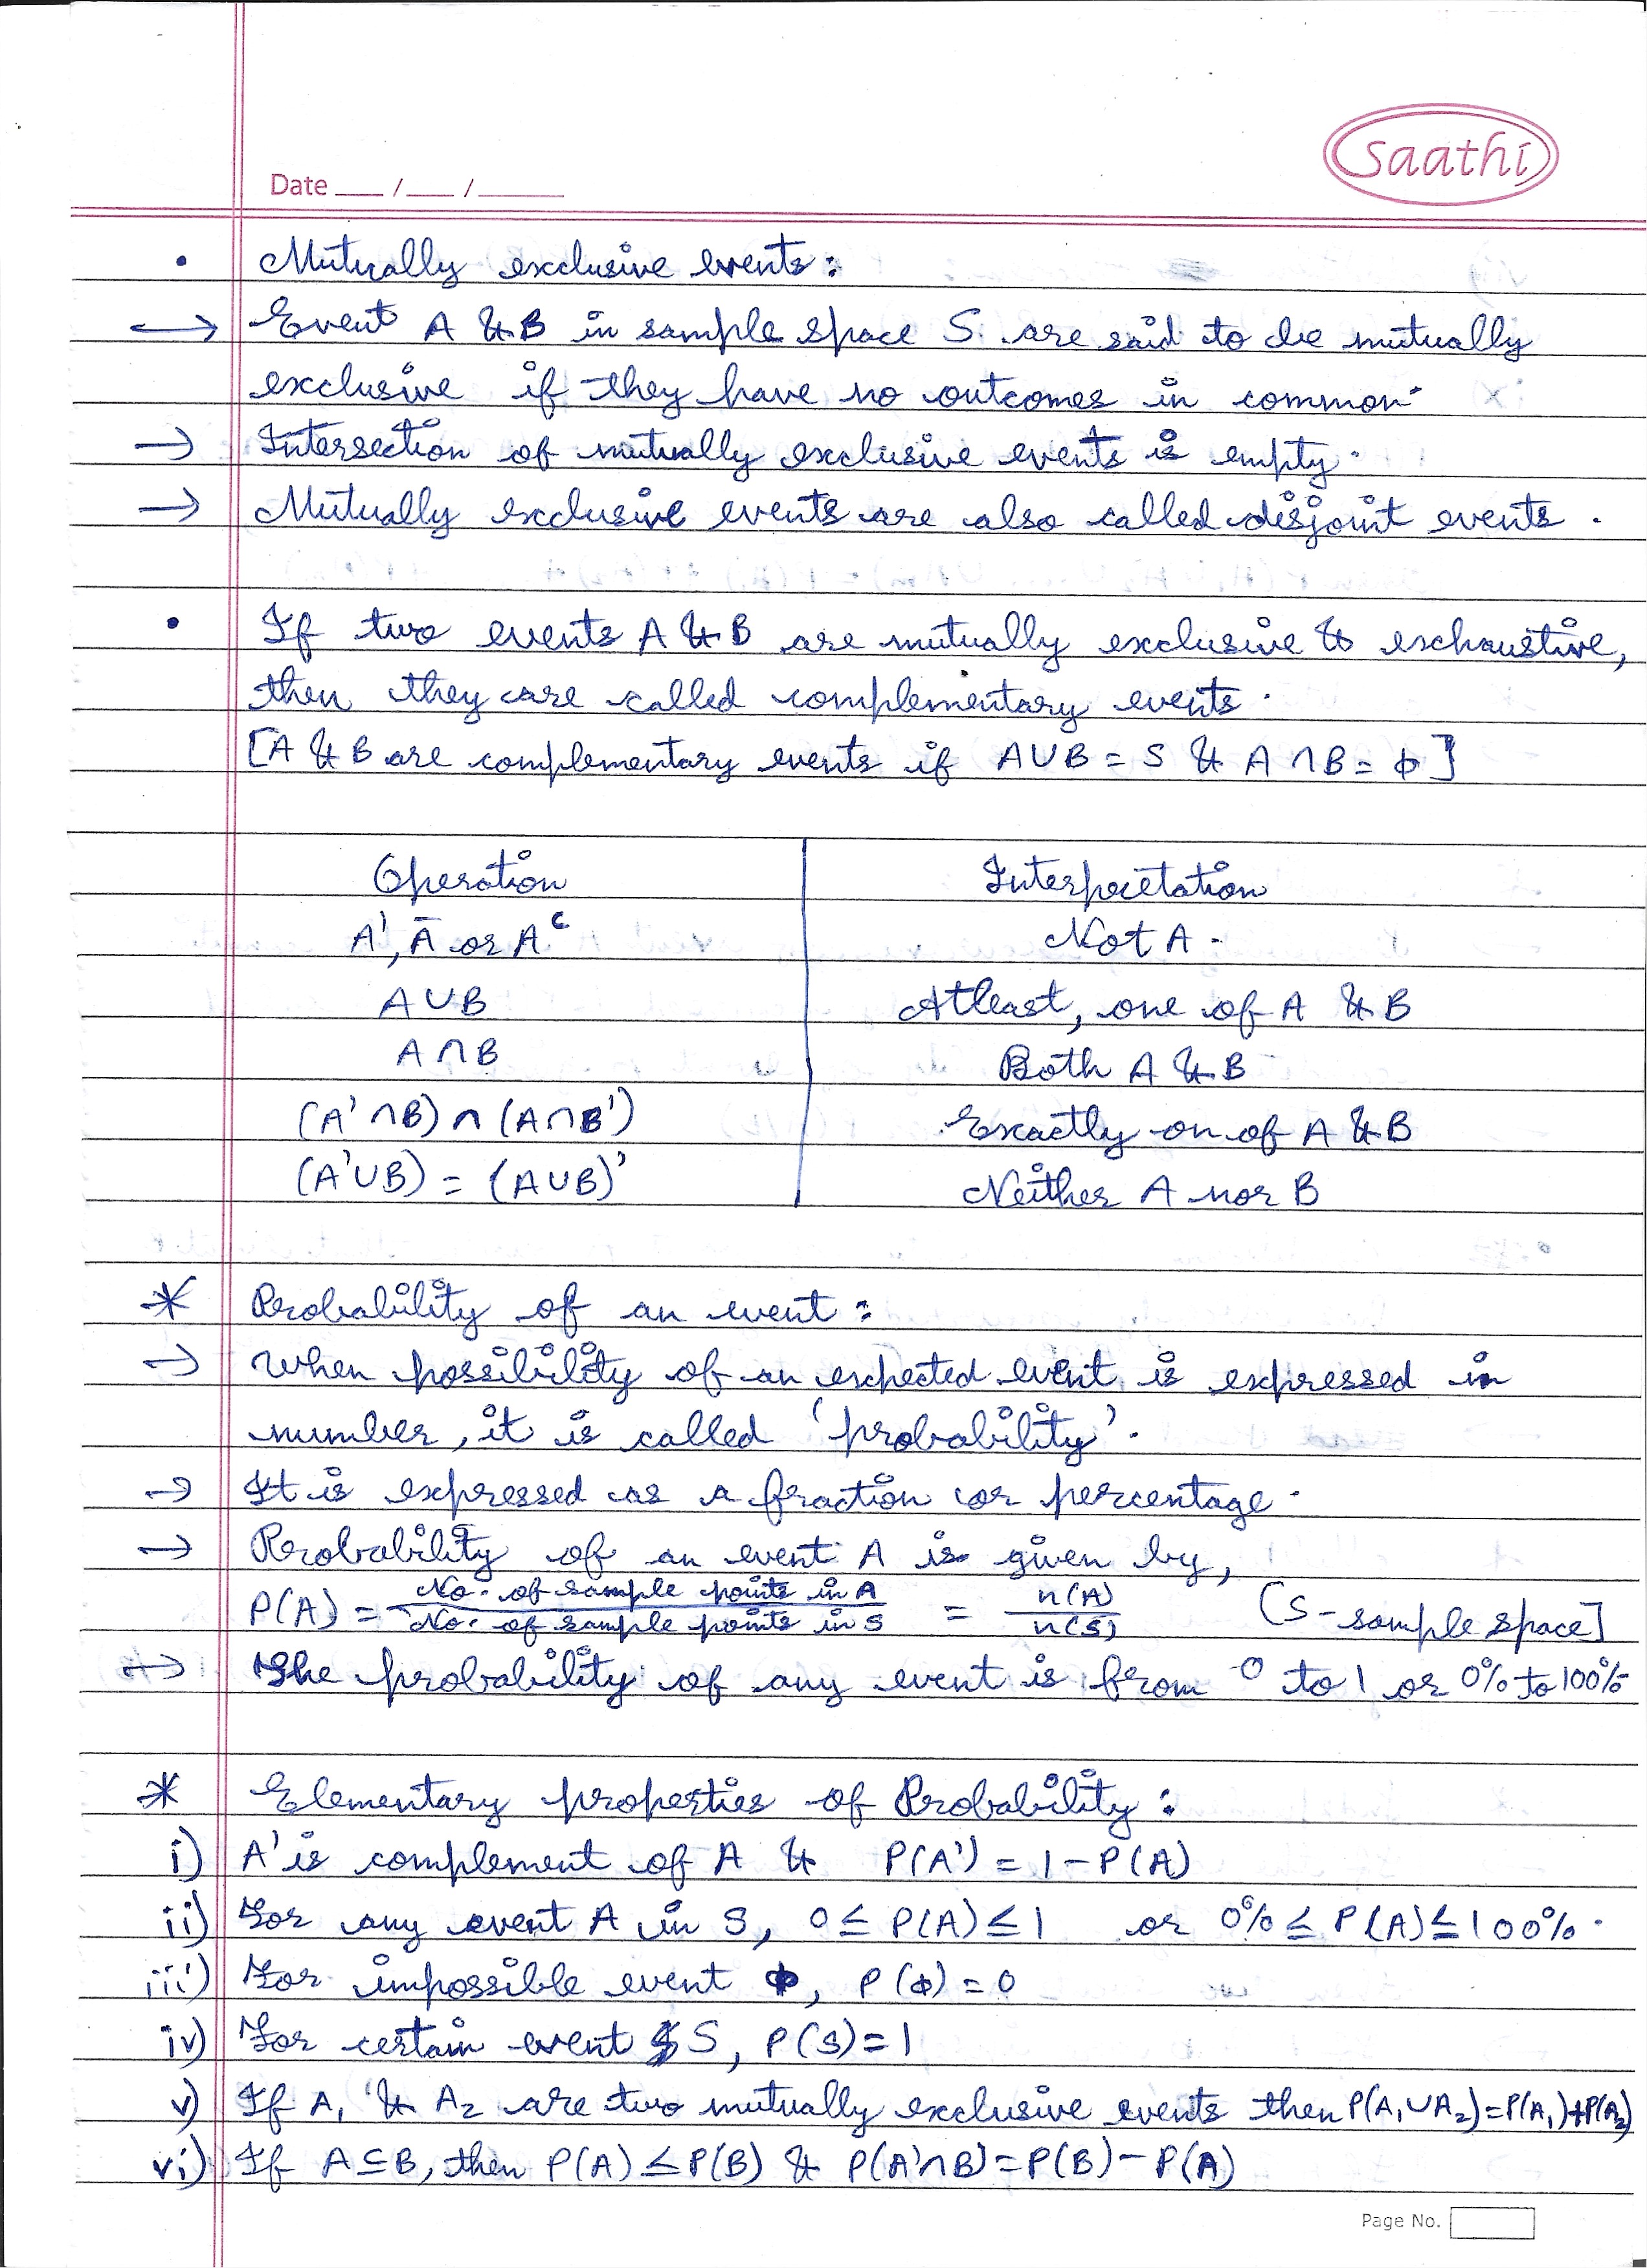 saathi
Date ___ / ___ / _____
• Mutually exclusive events :
→ Event A & B in sample space S are said to be mutually
exclusive if they have no outcomes in common.
→ Intersection of mutually exclusive events is empty.
→ Mutually exclusive events are also called disjoint events .
• If two events A & B are mutually exclusive & exhaustive,
then they are called complementary events.
[A & B are complementary events if A∪B = S & A∩B = ϕ]
Operation Interpretation
A', Ā or Aᶜ Not A.
A∪B Atleast, one of A & B
A∩B Both A & B
(A'∩B)∩(A∩B') Exactly on of A & B
(A'∪B) = (A∪B)' Neither A nor B
* Probability of an event :
→ When possibility of an expected event is expressed in
number, it is called 'probability'.
→ It is expressed as a fraction or percentage.
→ Probability of an event A is given by,
P(A) = No. of sample points in A / No. of sample points in S = n(A) / n(S) [S-sample space]
→ The probability of any event is from 0 to 1 or 0% to 100%
* Elementary properties of Probability :
i) A' is complement of A & P(A') = 1-P(A)
ii) For any event A in S, 0 ≤ P(A) ≤ 1 or 0% ≤ P(A) ≤ 100%.
iii) For impossible event ϕ, P(ϕ) = 0
iv) For certain event S, P(S) = 1
v) If A₁ & A₂ are two mutually exclusive events then P(A₁∪A₂)=P(A₁)+P(A₂)
vi) If A⊆B, then P(A) ≤ P(B) & P(A'∩B) = P(B) - P(A)
Page No.